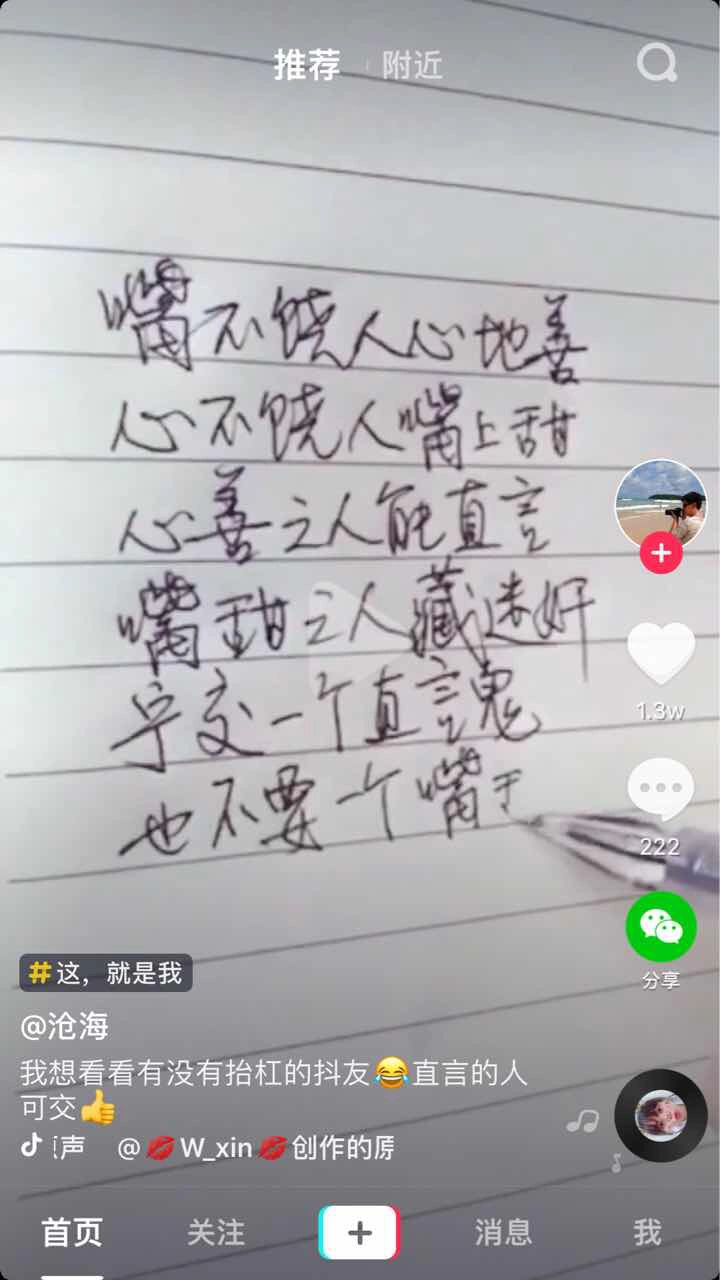 推荐
附近
嘴不饶人心地善
心不饶人嘴上甜
心善之人能直言
嘴甜之人藏迷奸
宁交一个直言鬼
也不要一个嘴
1.3w
222
分享
#这，就是我
@沧海
我想看看有没有抬杠的抖友😂直言的人
可交👍
声 @💋W_xin💋创作的
首页
关注
消息
我